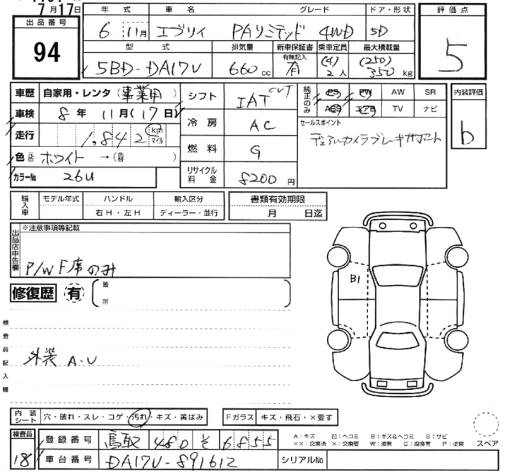 7月17日
出品番号
94
年式 車名 グレード ドア・形状
6 11月 エブリィ PAリミテッド 4WD 5D
型式 排気量 新車保証書 乗車定員 最大積載量
5BD-DA17V 660cc 有 (4) 2人 (250) 350kg
評価点
5
車歴 自家用・レンタ 事業用
車検 8年11月(17日)
走行 1,842 km マイル
色 ホワイト →(
カラーNo 26U
シフト IAT
冷房 AC
燃料 G
リサイクル料金 8200円
純正のみ AW SR
TV ナビ
セールスポイント
デュアルカメラブレーキサポート
内装評価
b
輸入車 モデル年式 ハンドル 輸入区分
右H・左H ディーラー・並行
書類有効期限
月 日迄
出品店申告欄
※注意事項等記載
P/W F席のみ
修復歴 有
箇所
検査員記入欄
外装 A.U
B1
内装シート 穴・破れ・スレ・コゲ・汚れ・キズ・黄ばみ
Fガラス キズ・飛石・×要す
スペア
検査員
18
登録番号 鳥取 480 6855
車台番号 DA17V-891612
シリアルNo.
A:キズ B:キズ&ヘコミ S:サビ